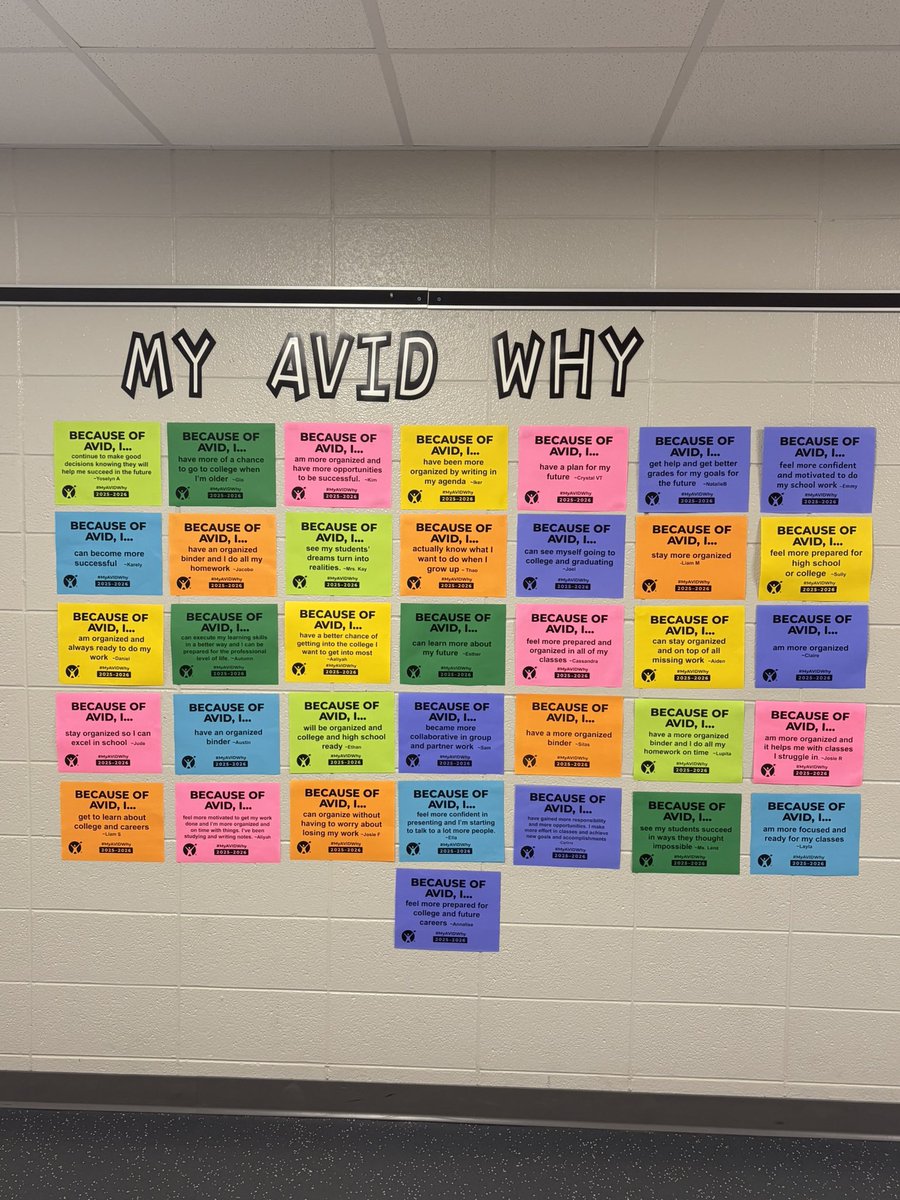 MY AVID WHY
BECAUSE OF
AVID, I...
continue to make good
decisions knowing they will
help me succeed in the future
~Yoselyn A
#MyAVIDWhy
2025-2026
BECAUSE OF
AVID, I...
have more of a chance
to go to college when
I'm older ~Gia
#MyAVIDWhy
2025-2026
BECAUSE OF
AVID, I...
am more organized and
have more opportunities
to be successful. ~Kim
#MyAVIDWhy
2025-2026
BECAUSE OF
AVID, I...
have been more
organized by writing in
my agenda ~Iker
#MyAVIDWhy
2025-2026
BECAUSE OF
AVID, I...
have a plan for my
future ~Crystal VT
#MyAVIDWhy
2025-2026
BECAUSE OF
AVID, I...
get help and get better
grades for my goals for
the future ~NatalieB
#MyAVIDWhy
2025-2026
BECAUSE OF
AVID, I...
feel more confident
and motivated to do
my school work -Emmy
#MyAVIDWhy
2025-2026
BECAUSE OF
AVID, I...
can become more
successful ~Karely
#MyAVIDWhy
2025-2026
BECAUSE OF
AVID, I...
have an organized
binder and I do all my
homework ~Jacobo
#MyAVIDWhy
2025-2026
BECAUSE OF
AVID, I...
see my students'
dreams turn into
realities. ~Mrs. Kay
#MyAVIDWhy
2025-2026
BECAUSE OF
AVID, I...
actually know what I
want to do when I
grow up ~ Thao
#MyAVIDWhy
2025-2026
BECAUSE OF
AVID, I...
can see myself going to
college and graduating
~Joel
#MyAVIDWhy
2025-2026
BECAUSE OF
AVID, I...
stay more organized
-Liam M
#MyAVIDWhy
2025-2026
BECAUSE OF
AVID, I...
feel more prepared for
high school
or college ~Sully
#MyAVIDWhy
2025-2026
BECAUSE OF
AVID, I...
am organized and
always ready to do my
work ~Daniel
#MyAVIDWhy
2025-2026
BECAUSE OF
AVID, I...
can execute my learning skills
in a better way and I can be
prepared for the professional
level of life. ~Autumn
#MyAVIDWhy
2025-2026
BECAUSE OF
AVID, I...
have a better chance of
getting into the college I
want to get into most
~Aaliyah
#MyAVIDWhy
2025-2026
BECAUSE OF
AVID, I...
can learn more about
my future ~Esther
#MyAVIDWhy
2025-2026
BECAUSE OF
AVID, I...
feel more prepared and
organized in all of my
classes ~Cassandra
#MyAVIDWhy
2025-2026
BECAUSE OF
AVID, I...
can stay organized
and on top of all
missing work ~Aiden
#MyAVIDWhy
2025-2026
BECAUSE OF
AVID, I...
am more organized
~Claire
#MyAVIDWhy
2025-2026
BECAUSE OF
AVID, I...
stay organized so I can
excel in school ~Jude
#MyAVIDWhy
2025-2026
BECAUSE OF
AVID, I...
have an organized
binder ~Austin
#MyAVIDWhy
2025-2026
BECAUSE OF
AVID, I...
will be organized and
college and high school
ready ~Ethan
#MyAVIDWhy
2025-2026
BECAUSE OF
AVID, I...
became more
collaborative in group
and partner work ~Sam
#MyAVIDWhy
2025-2026
BECAUSE OF
AVID, I...
have a more organized
binder ~Silas
#MyAVIDWhy
2025-2026
BECAUSE OF
AVID, I...
have a more organized
binder and I do all my
homework on time ~Lupita
#MyAVIDWhy
2025-2026
BECAUSE OF
AVID, I...
am more organized and
it helps me with classes
I struggle in ~Josie R
#MyAVIDWhy
2025-2026
BECAUSE OF
AVID, I...
get to learn about
college and careers
~Liam S
#MyAVIDWhy
2025-2026
BECAUSE OF
AVID, I...
feel more motivated to get my work
done and I'm more organized and
on time with things. I've been
studying and writing notes. ~Aliyah
#MyAVIDWhy
2025-2026
BECAUSE OF
AVID, I...
can organize without
having to worry about
losing my work ~Josie F
#MyAVIDWhy
2025-2026
BECAUSE OF
AVID, I...
feel more confident in
presenting and I'm starting
to talk to a lot more people.
~Ella
#MyAVIDWhy
2025-2026
BECAUSE OF
AVID, I...
have gained more responsibility
and more opportunities. I make
more effort in classes and achieve
new goals and accomplishments
#MyAVIDWhy
2025-2026
BECAUSE OF
AVID, I...
see my students succeed
in ways they thought
impossible ~Ms. Lenz
#MyAVIDWhy
2025-2026
BECAUSE OF
AVID, I...
am more focused and
ready for my classes
~Layla
#MyAVIDWhy
2025-2026
BECAUSE OF
AVID, I...
feel more prepared for
college and future
careers ~Annalise
#MyAVIDWhy
2025-2026